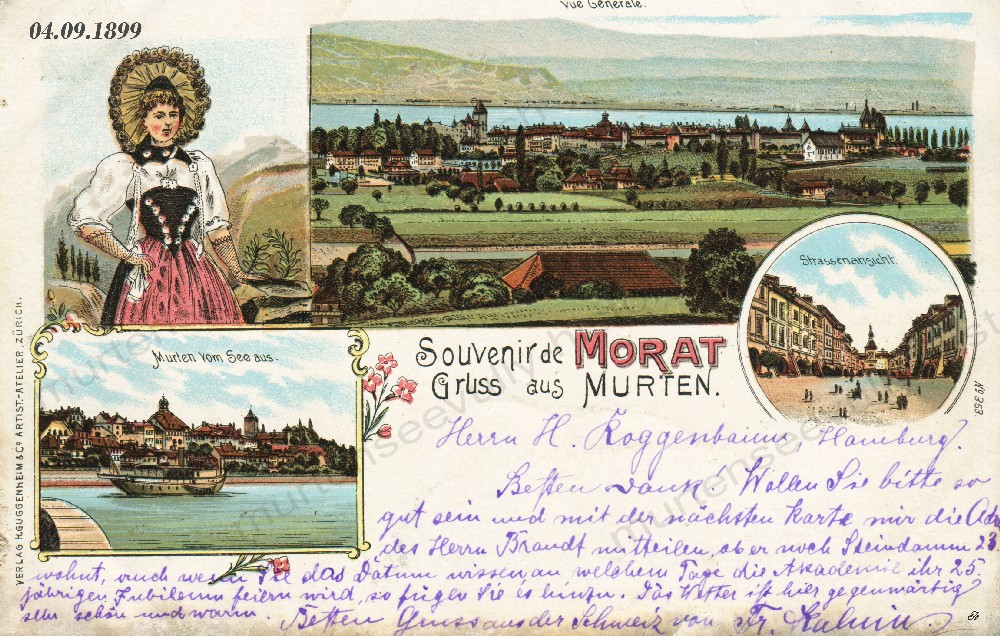 04.09.1899
Vue Générale.
Strassenansicht.
Murten vom See aus.
Souvenir de MORAT
Gruss aus MURTEN.
No 353.
VERLAG H. GUGGENHEIM & Co ARTIST.-ATELIER, ZÜRICH.
Herrn H. Roggenbaum, Hamburg.
Besten Dank! Wollen Sie bitte so
gut sein und mit der nächsten Karte mir die Adr.
des Herrn Brandt mitteilen, ob er noch Steindamm 23
wohnt, auch wenn Sie das Datum wissen, an welchem Tage die Akademie ihr 25
jährigen Jubiläum feiern wird, so fügen Sie es hinzu. Das Wetter ist hier gegenwärtig
sehr schön und warm. Besten Gruss aus der Schweiz von Fr.